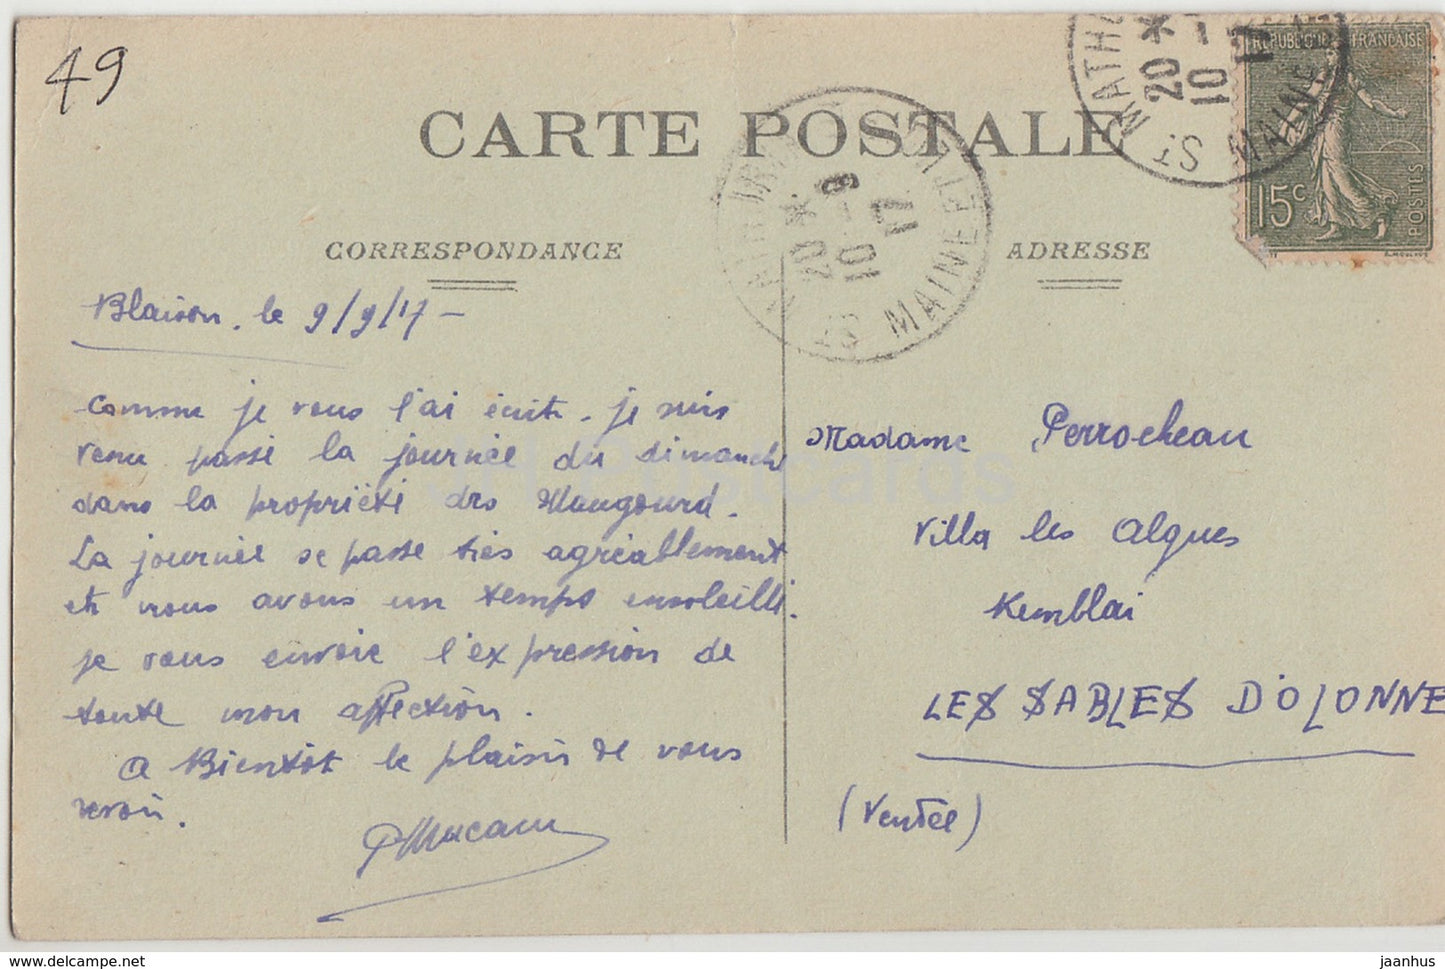 49
CARTE POSTALE
MATH
20 *
10
ST MAINE
REPUBLIQUE FRANÇAISE
15c
POSTES
20 * 9
10 17
ST MAINE ET L
CORRESPONDANCE
ADRESSE
Blaison, le 9/9/17 -
Comme je vous l'ai écrit - je suis
venu passé la journée du dimanche
dans la propriété des
La journée se passe très agréablement
et nous avons un temps ensoleillé.
je vous envoie l'expression de
toute mon affection.
A Bientôt le plaisir de vous
revoir.
Madame Perrocheau
Villa les Algues
Kemblai
LES SABLES D'OLONNE
(Vendée)
JH Postcards
jaanhus